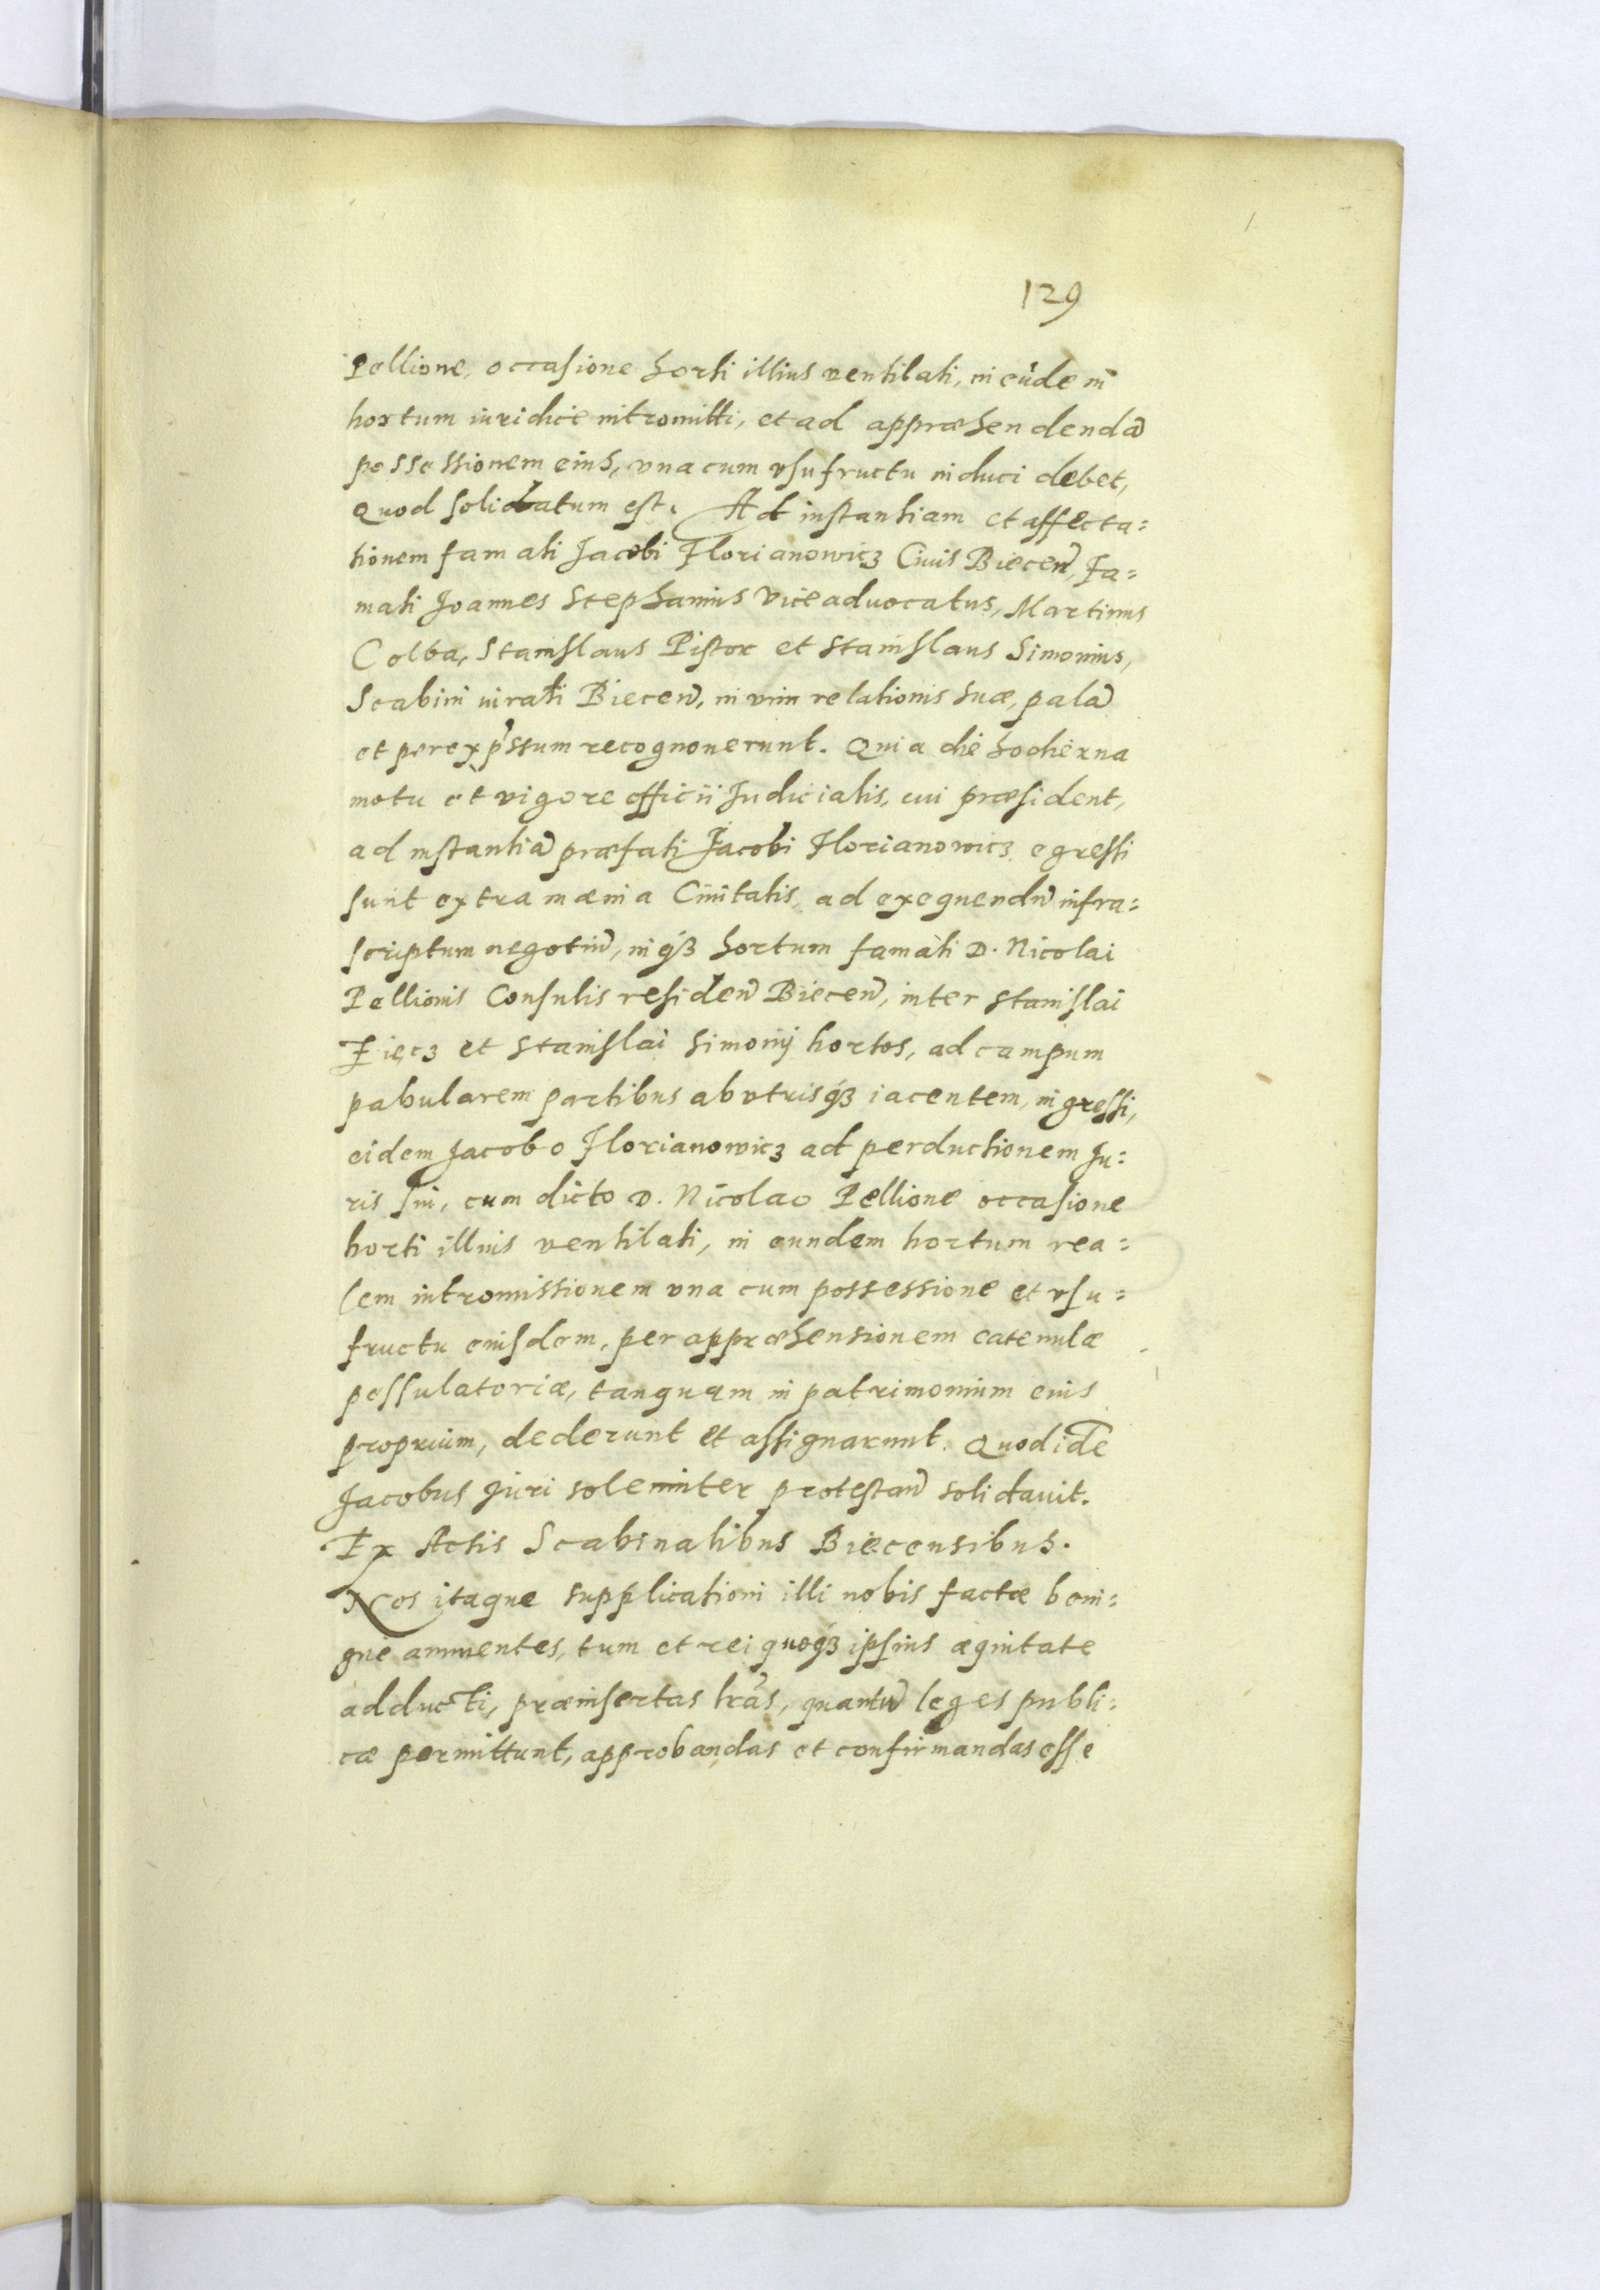 129
Pellione, occasione horti illius ventilati, in eūde m̄
hortum iuridice intromitti, et ad appræhendendã
possessionem eius, vna cum vsufructu induci debet,
Quod solidatum est. Ad instantiam et affecta=
tionem famati Jacobi Florianowicz Ciuis Biecen̄, Fa=
mati Joannes Stephanius Viceaduocatus, Martinus
Colba, Stanislaus Pistor et Stanislaus Simonius,
Scabini iurati Biecen̄, in vim relationis suæ, palã
et per exp̃ssum recognouerunt. Quia die hodierna
motu et vigore officii Judicialis, cui præsident,
ad instantiã præfati Jacobi Florianowicz egressi
sunt extra mænia Ciuitatis, ad exequendũ infra=
scriptum negotiũ, in qꝫ hortum famati D. Nicolai
Pellionis Consulis residen̄ Biecen̄, inter Stanislai
Fięcz et Stanislai Simonij hortos, ad campum
pabularem partibus ab vtrisqꝫ iacentem, ingressi,
eidem Jacobo Florianowicz ad perductionem Ju=
ris sui, cum dicto D. Nicolao Pellione occasione
horti illius ventilati, in eundem hortum rea=
lem intromissionem vna cum possessione et vsu=
fructu eiusdem, per appræhensionem catenulæ
pessulatoriæ, tanquam in patrimonium eius
proprium, dederunt et assignarunt. Quod idē
Jacobus Juri solenniter protestan̄ solidauit.
Ex Actis Scabinalibus Biecensibus.
Nos itaque supplicationi illi nobis factæ beni=
gne annuentes, tum et rei quoqꝫ ipsius æquitate
adducti, præinsertas lrãs, quantũ leges publi=
cæ permittunt, approbandas et confirmandas esse